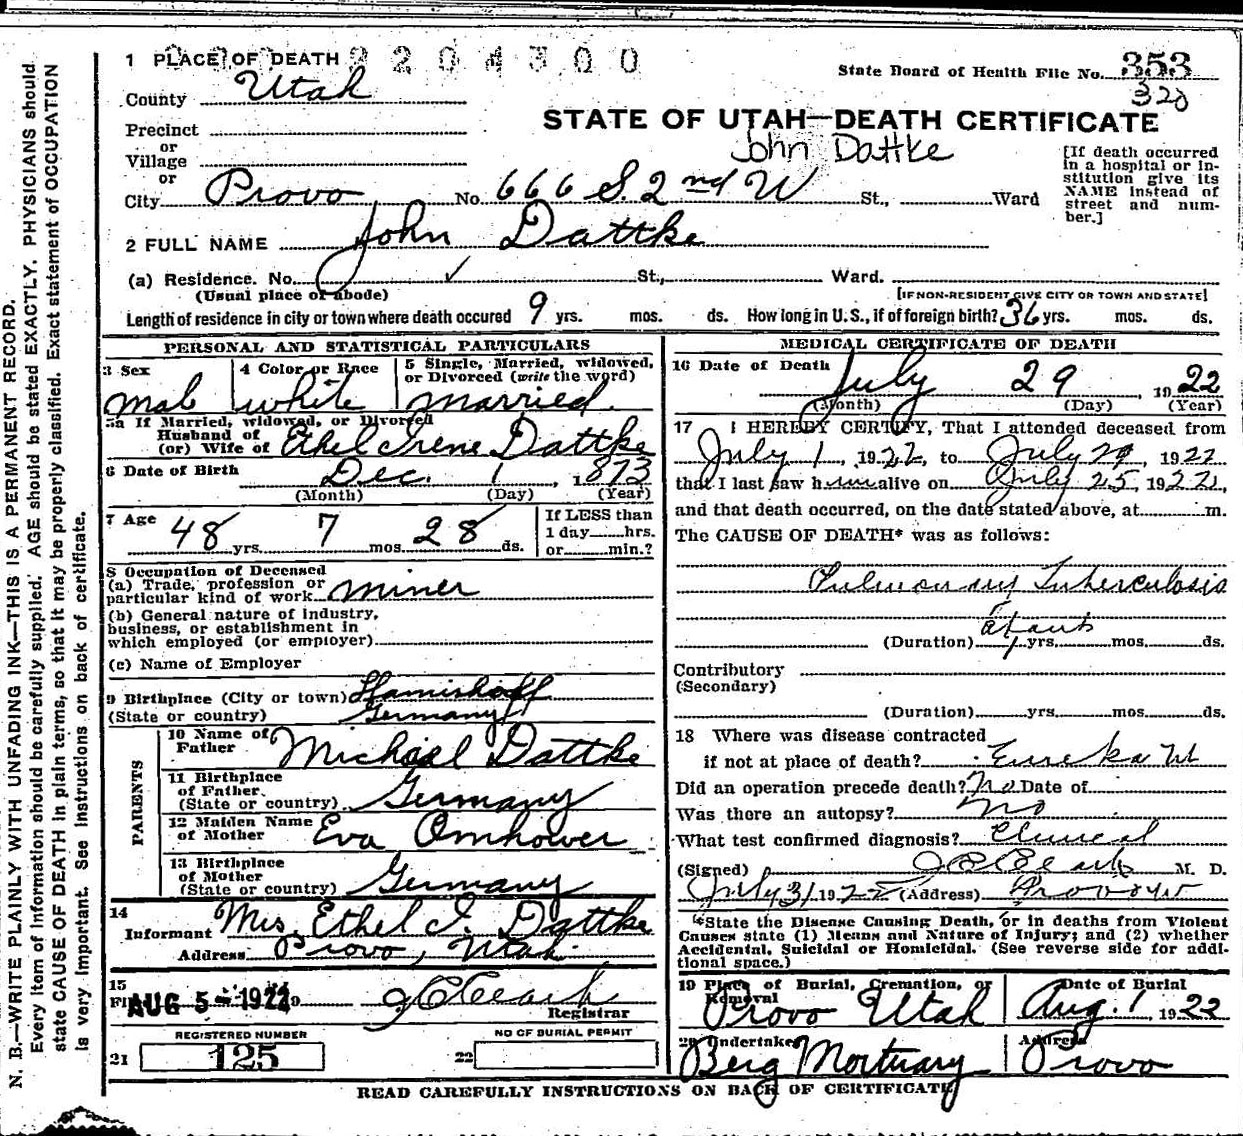 1 PLACE OF DEATH 2204300
State Board of Health File No. 353
320
County Utah
STATE OF UTAH—DEATH CERTIFICATE
Precinct
or
Village
or
John Dattke
[If death occurred in a hospital or institution give its NAME instead of street and number.]
City Provo No. 666 S. 2nd W St., Ward
2 FULL NAME John Dattke
(a) Residence. No. ✓ St., Ward.
(Usual place of abode) [IF NON-RESIDENT GIVE CITY OR TOWN AND STATE]
Length of residence in city or town where death occured 9 yrs. mos. ds. How long in U. S., if of foreign birth? 36 yrs. mos. ds.
PERSONAL AND STATISTICAL PARTICULARS
3 Sex
male
4 Color or Race
white
5 Single, Married, widowed, or Divorced (write the word)
married.
5a If Married, widowed, or Divorced
Husband of
(or) Wife of Ethel Irene Dattke
6 Date of Birth Dec. 1, 1873
(Month) (Day) (Year)
7 Age
48 yrs. 7 mos. 28 ds.
If LESS than
1 day hrs.
or min.?
8 Occupation of Deceased
(a) Trade, profession or
particular kind of work miner
(b) General nature of industry,
business, or establishment in
which employed (or employer)
(c) Name of Employer
9 Birthplace (City or town)
(State or country) Germany
PARENTS
10 Name of
Father Michael Dattke
11 Birthplace
of Father.
(State or country). Germany
12 Maiden Name
of Mother Eva Omhower
13 Birthplace
of Mother
(State or country) Germany
14
Informant Mrs. Ethel I. Dattke
Address Provo, Utah
15
AUG 5-1922
Registrar
REGISTERED NUMBER
21 125
NO OF BURIAL PERMIT
22
MEDICAL CERTIFICATE OF DEATH
16 Date of Death
July 29 1922
(Month) (Day) (Year)
17 I HEREBY CERTIFY, That I attended deceased from
July 1, 1922, to July 29, 1922
that I last saw him alive on July 25, 1922,
and that death occurred, on the date stated above, at m.
The CAUSE OF DEATH* was as follows:
Pulmonary Tuberculosis
about
(Duration) yrs. mos. ds.
Contributory
(Secondary)
(Duration) yrs. mos. ds.
18 Where was disease contracted
if not at place of death? Eureka Ut
Did an operation precede death? no Date of
Was there an autopsy? no
What test confirmed diagnosis? Clinical
(Signed) M. D.
July 31 1922 (Address) Provo Ut
*State the Disease Causing Death, or in deaths from Violent
Causes state (1) Means and Nature of Injury; and (2) whether
Accidental, Suicidal or Homicidal. (See reverse side for additional space.)
19 Place of Burial, Cremation, or
Removal
Provo Utah
Date of Burial
Aug. 1, 1922
20 Undertaker
Berg Mortuary
Address
Provo
READ CAREFULLY INSTRUCTIONS ON BACK OF CERTIFICATE
N. B.—WRITE PLAINLY WITH UNFADING INK—THIS IS A PERMANENT RECORD.
Every item of information should be carefully supplied. AGE should be stated EXACTLY. PHYSICIANS should
state CAUSE OF DEATH in plain terms, so that it may be properly classified. Exact statement of OCCUPATION
is very important. See instructions on back of certificate.